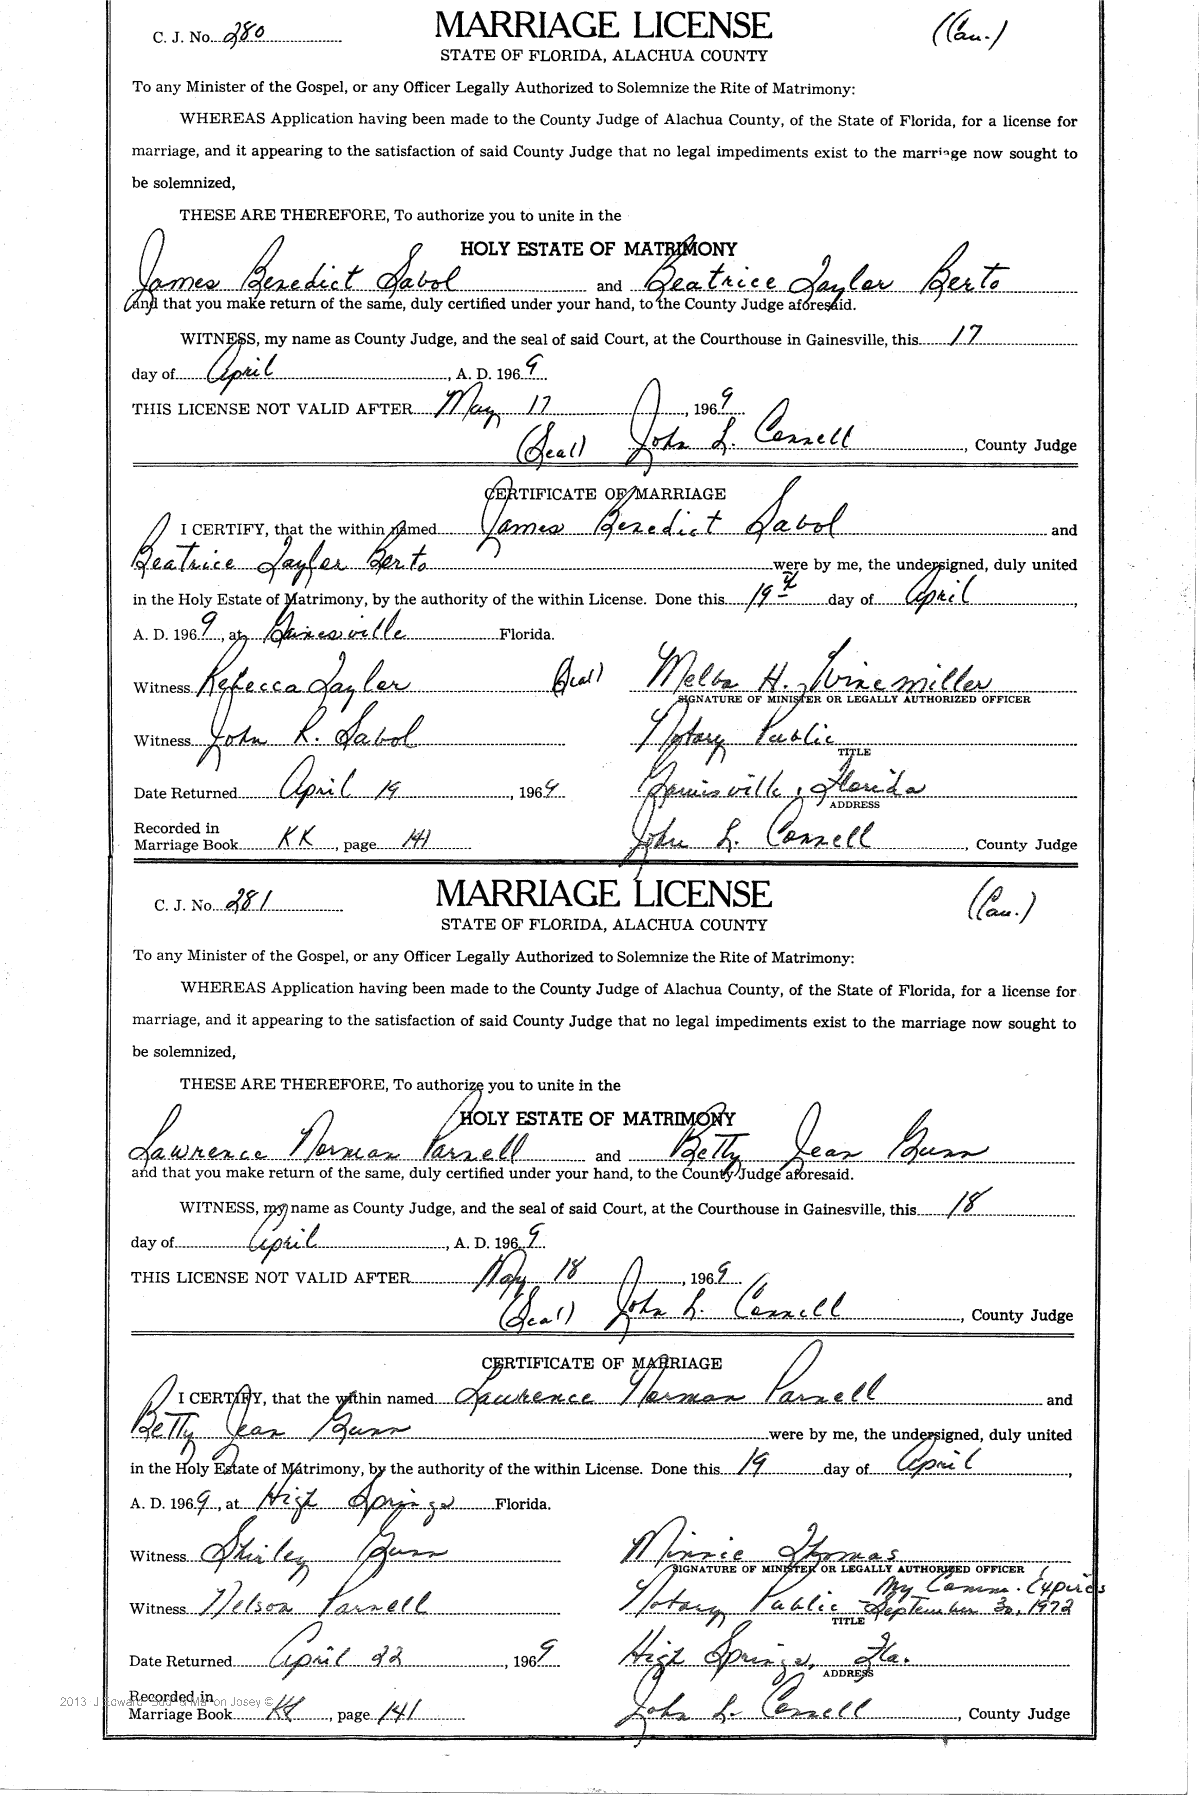 C. J. No. 280 MARRIAGE LICENSE (Cau.)
STATE OF FLORIDA, ALACHUA COUNTY
To any Minister of the Gospel, or any Officer Legally Authorized to Solemnize the Rite of Matrimony:
WHEREAS Application having been made to the County Judge of Alachua County, of the State of Florida, for a license for
marriage, and it appearing to the satisfaction of said County Judge that no legal impediments exist to the marriage now sought to
be solemnized,
THESE ARE THEREFORE, To authorize you to unite in the
HOLY ESTATE OF MATRIMONY
James Benedict Sabol and Beatrice Taylor Berto
and that you make return of the same, duly certified under your hand, to the County Judge aforesaid.
WITNESS, my name as County Judge, and the seal of said Court, at the Courthouse in Gainesville, this 17
day of April, A. D. 1969
THIS LICENSE NOT VALID AFTER May 17, 1969
(Seal) John L. Connell, County Judge
CERTIFICATE OF MARRIAGE
I CERTIFY, that the within named James Benedict Sabol and
Beatrice Taylor Berto were by me, the undersigned, duly united
in the Holy Estate of Matrimony, by the authority of the within License. Done this 19 day of April,
A. D. 1969, at Gainesville Florida.
Witness Rebecca Taylor (Seal) Melba H. Winemiller
SIGNATURE OF MINISTER OR LEGALLY AUTHORIZED OFFICER
Witness John R. Sabol Notary Public
TITLE
Date Returned April 19, 1969 Gainesville, Florida
ADDRESS
Recorded in
Marriage Book KK, page 141 John L. Connell, County Judge
C. J. No. 281 MARRIAGE LICENSE (Cau.)
STATE OF FLORIDA, ALACHUA COUNTY
To any Minister of the Gospel, or any Officer Legally Authorized to Solemnize the Rite of Matrimony:
WHEREAS Application having been made to the County Judge of Alachua County, of the State of Florida, for a license for
marriage, and it appearing to the satisfaction of said County Judge that no legal impediments exist to the marriage now sought to
be solemnized,
THESE ARE THEREFORE, To authorize you to unite in the
HOLY ESTATE OF MATRIMONY
Lawrence Norman Parnell and Betty Jean Gunn
and that you make return of the same, duly certified under your hand, to the County Judge aforesaid.
WITNESS, my name as County Judge, and the seal of said Court, at the Courthouse in Gainesville, this 18
day of April, A. D. 1969
THIS LICENSE NOT VALID AFTER May 18, 1969
(Seal) John L. Connell, County Judge
CERTIFICATE OF MARRIAGE
I CERTIFY, that the within named Lawrence Norman Parnell and
Betty Jean Gunn were by me, the undersigned, duly united
in the Holy Estate of Matrimony, by the authority of the within License. Done this 19 day of April,
A. D. 1969, at High Springs Florida.
Witness Shirley Gunn Minnie Thomas
SIGNATURE OF MINISTER OR LEGALLY AUTHORIZED OFFICER
My Comm. Expires
Witness Nelson Parnell Notary Public - September 30, 1972
TITLE
Date Returned April 22, 1969 High Springs, Fla.
ADDRESS
Recorded in
2013 J Edward Josey ©
Marriage Book KK, page 141 John L. Connell, County Judge